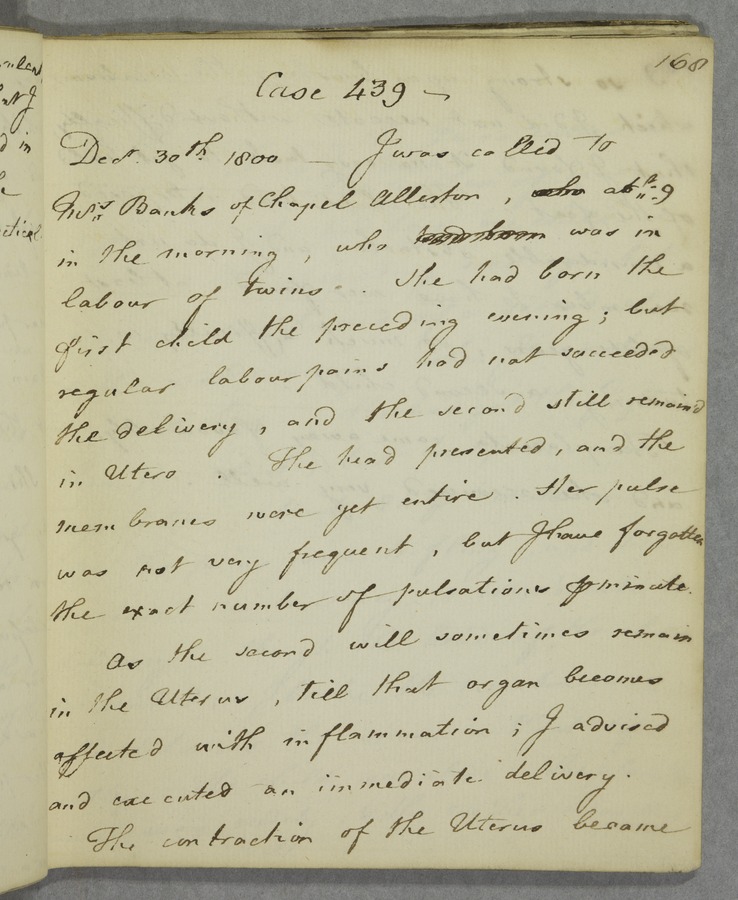 168
Case 439 ~
Decr. 30th. 1800 — I was called to
Mrs. Banks of Chapel Allerton, who at p. 9
in the morning, who had born was in
labour of twins. She had born the
first child the preceding evening; but
regular labour pains had not succeeded
the delivery, and the second still remain'd
in Utero. The head presented, and the
membranes were yet entire. Her pulse
was not very frequent, but I have forgotten
the exact number of pulsations p minute.
As the second will sometimes remain
in the Uterus, till that organ becomes
affected with inflammation; I advised
and executed an immediate delivery.
The contraction of the Uterus became